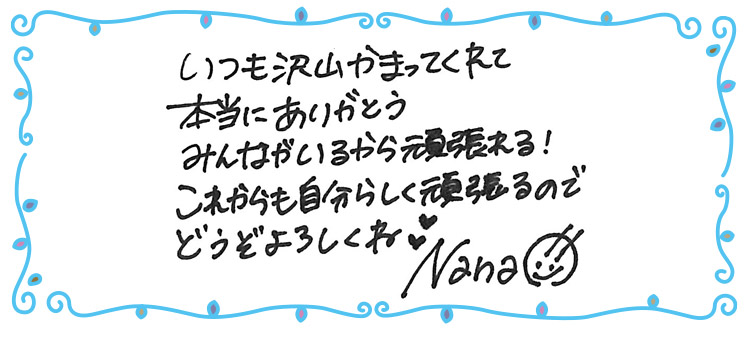 いつも沢山かまってくれて
本当にありがとう
みんながいるから頑張れる！
これからも自分らしく頑張るので
どうぞよろしくね
Nana